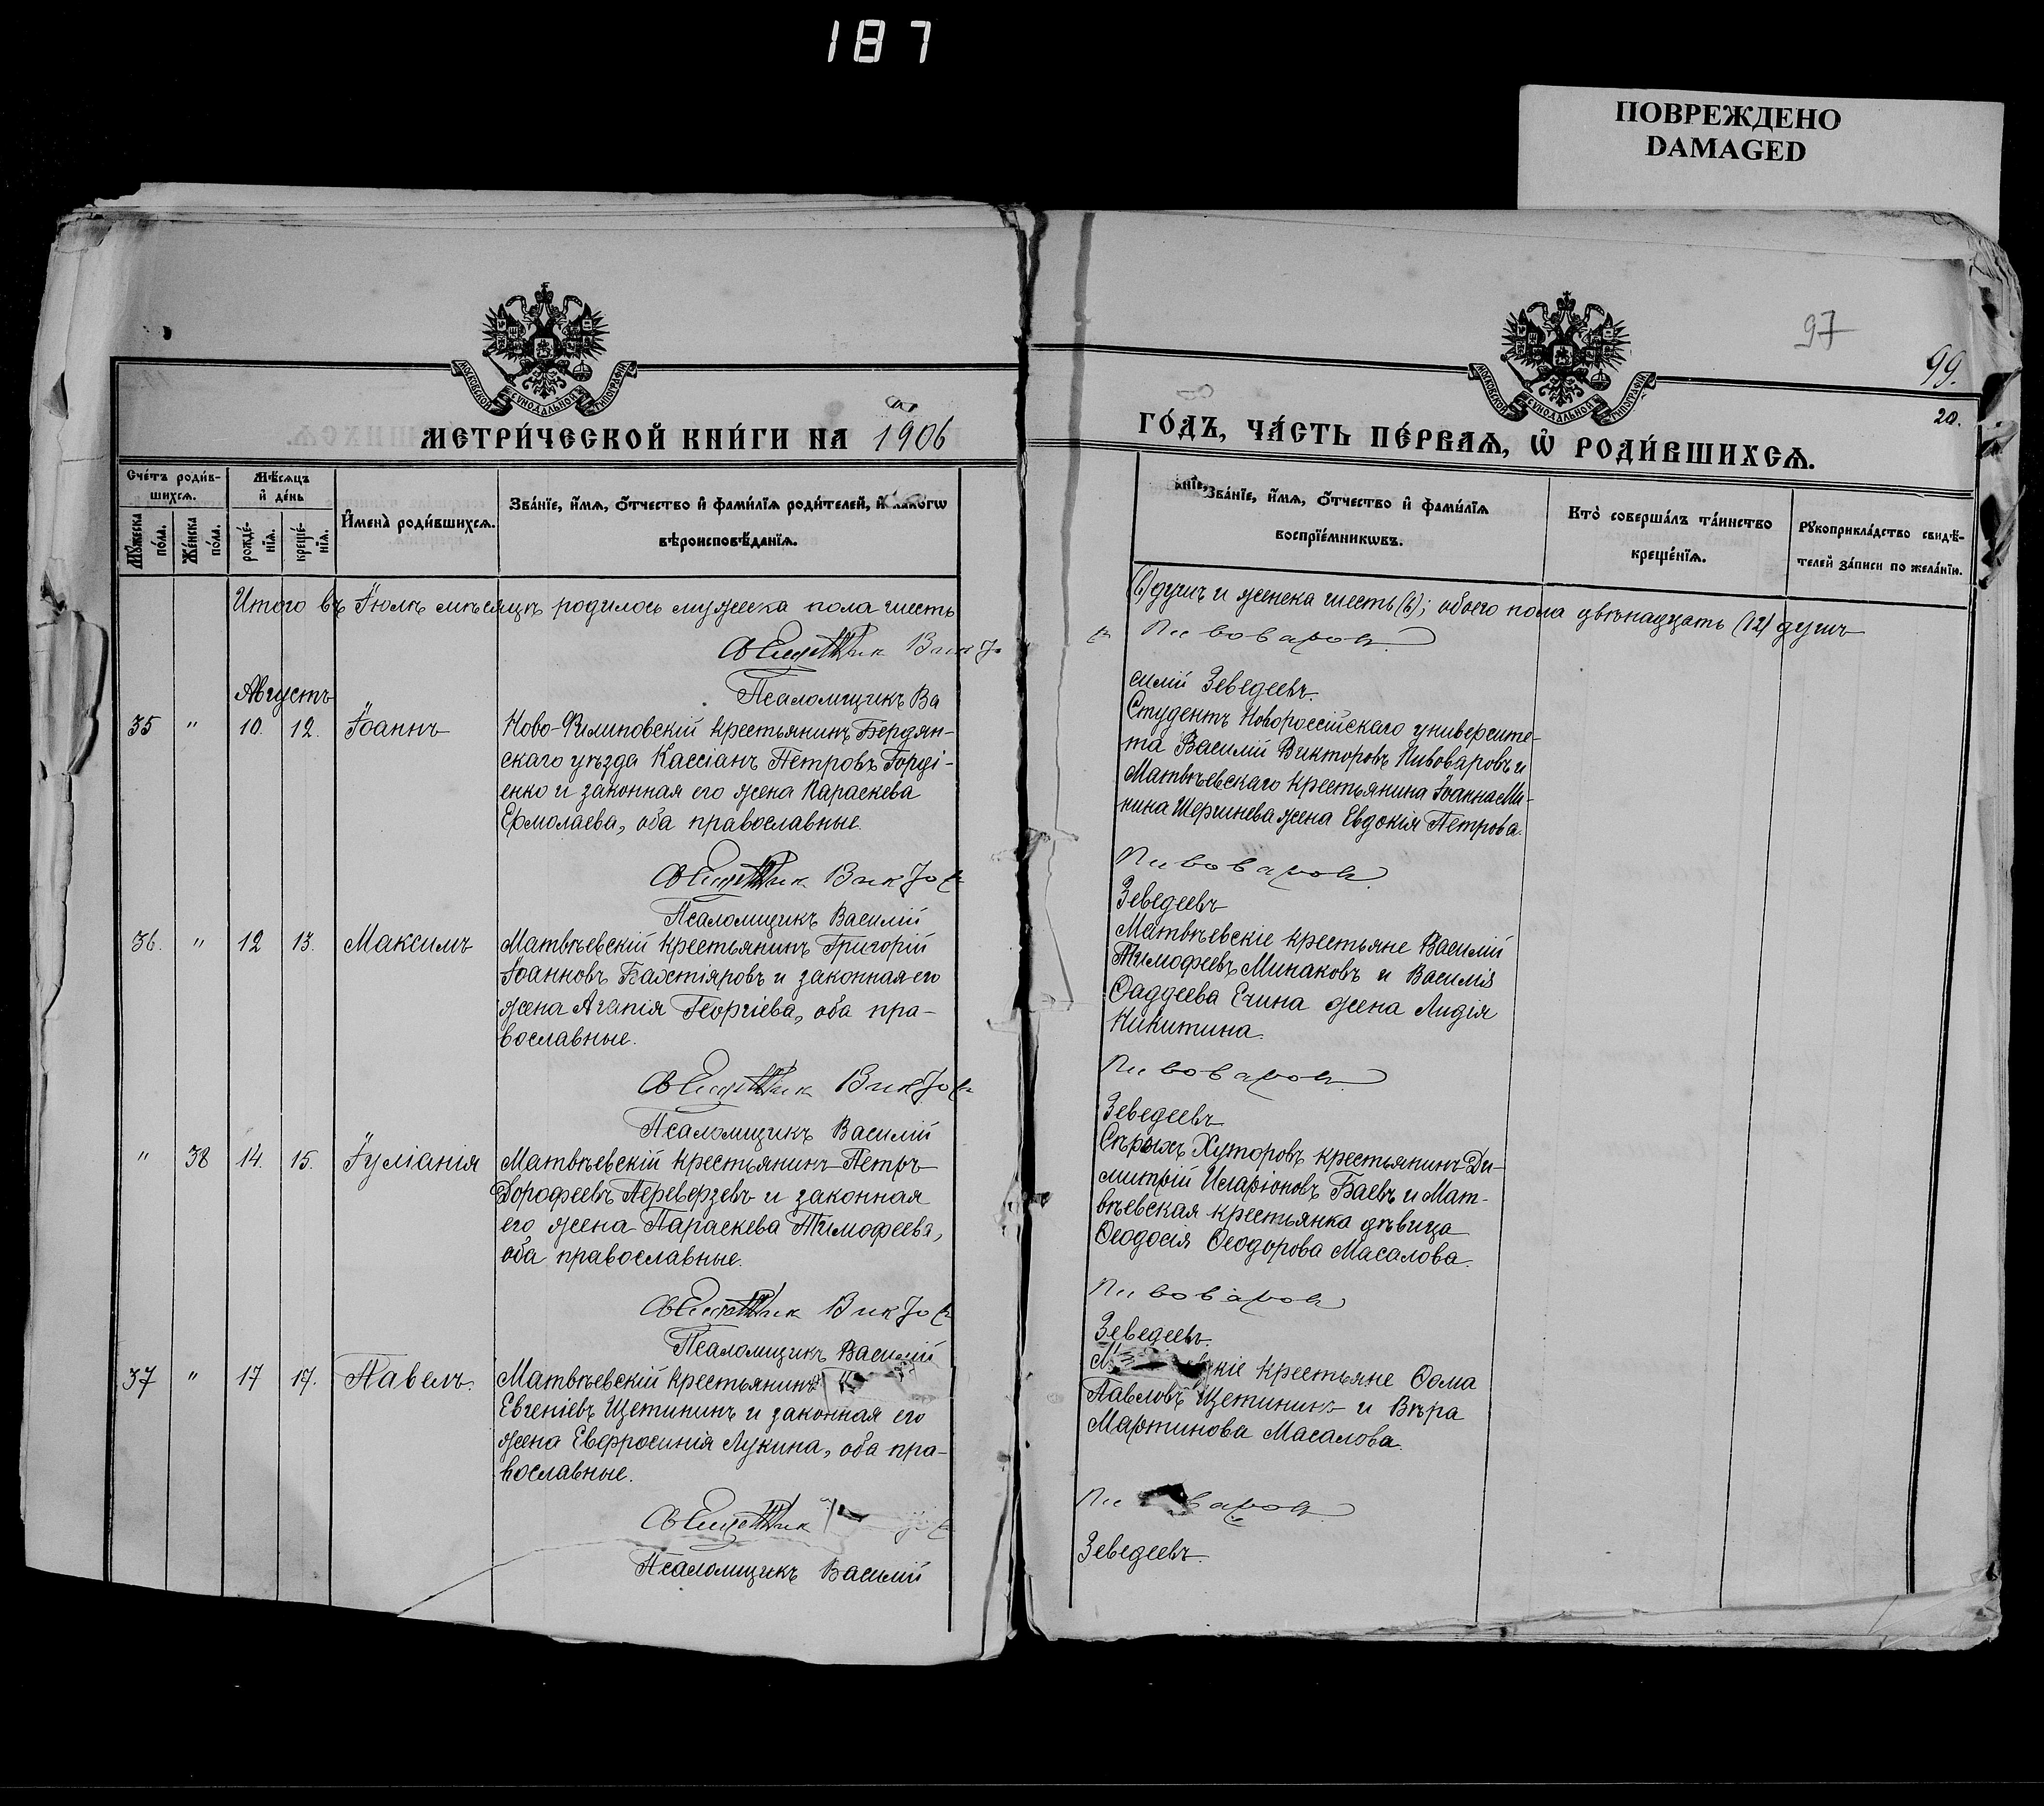 187
ПОВРЕЖДЕНО
DAMAGED
97
99.
20.
МОСКОВСКОЙ СѴНОДАЛЬНОЙ ТИПОГРАФІИ
МОСКОВСКОЙ СѴНОДАЛЬНОЙ ТИПОГРАФІИ
МЕТРИ́ЧЕСКОЙ КНИ́ГИ НА 1906
ГО́ДЪ, ЧА́СТЬ ПЕ́РВАѦ, Ѡ҆ РОДИ́ВШИХСѦ.
Сче́тъ роди́в-
шихсѧ.
Мѣ́сѧцъ
и҆ де́нь
Мꙋ́жеска
по́ла.
Же́нска
по́ла.
рожде́-
нїѧ.
креще́-
нїѧ.
И҆мена̀ роди́вшихсѧ.
Зва́нїе, и҆́мѧ, ѻ҆́тчество и҆ фами́лїѧ роди́телей, и҆ како́гѡ
вѣроисповѣ́данїѧ.
Зва́нїе, и҆́мѧ, ѻ҆́тчество и҆ фами́лїѧ
воспрїе́мникѡвъ.
Кто̀ соверша́лъ та́инство
креще́нїѧ.
Рꙋкоприкла́дство свидѣ́-
телей за́писи по жела́нїю.
Итого въ Іюлѣ мѣсяцѣ родилось мужеска пола шесть (6) душъ и женска шесть (6); обоего пола двѣнадцать (12) душъ
Священник Виктор Пивоваров
Псаломщикъ Василій Зеведеевъ.
Августъ
35 " 10. 12. Іоаннъ
Ново-Филиповскій крестьянинъ Бердян-
скаго уѣзда Кассіанъ Петровъ Горді-
енко и законная его жена Параскева
Ермолаева, оба православные.
Студентъ Новороссійскаго университе-
та Василій Викторовъ Пивоваровъ и
Матвѣевскаго крестьянина Іоанна Ми-
нина Шергинева жена Евдокія Петрова.
Священник Виктор Пивоваров
Псаломщикъ Василій Зеведеевъ
36. " 12 13. Максимъ
Матвѣевскій крестьянинъ Григорій
Іоанновъ Бахтіяровъ и законная его
жена Агапія Георгіева, оба пра-
вославные.
Матвѣевскіе крестьяне Василій
Тимофеевъ Минаковъ и Василія
Ѳаддеева Ечина жена Лидія
Никитина.
Священник Виктор Пивоваров
Псаломщикъ Василій Зеведеевъ
" 38 14. 15. Іуліанія
Матвѣевскій крестьянинъ Петръ
Дорофеевъ Переверзевъ и законная
его жена Параскева Тимофеева,
оба православные.
Сѣрыхъ Хуторовъ крестьянинъ Ди-
митрій Иларіоновъ Баевъ и Мат-
вѣевская крестьянка дѣвица
Ѳеодосія Ѳеодорова Масалова.
Священник Виктор Пивоваров
Псаломщикъ Василій Зеведеевъ.
37 " 17 17. Павелъ.
Матвѣевскій крестьянинъ
Евгеніевъ Щетининъ и законная его
жена Евфросинія Лукина, оба пра-
вославные.
крестьяне Ѳома
Павловъ Щетининъ и Вѣра
Мартинова Масалова.
Священник
Псаломщикъ Василій Зеведеевъ.